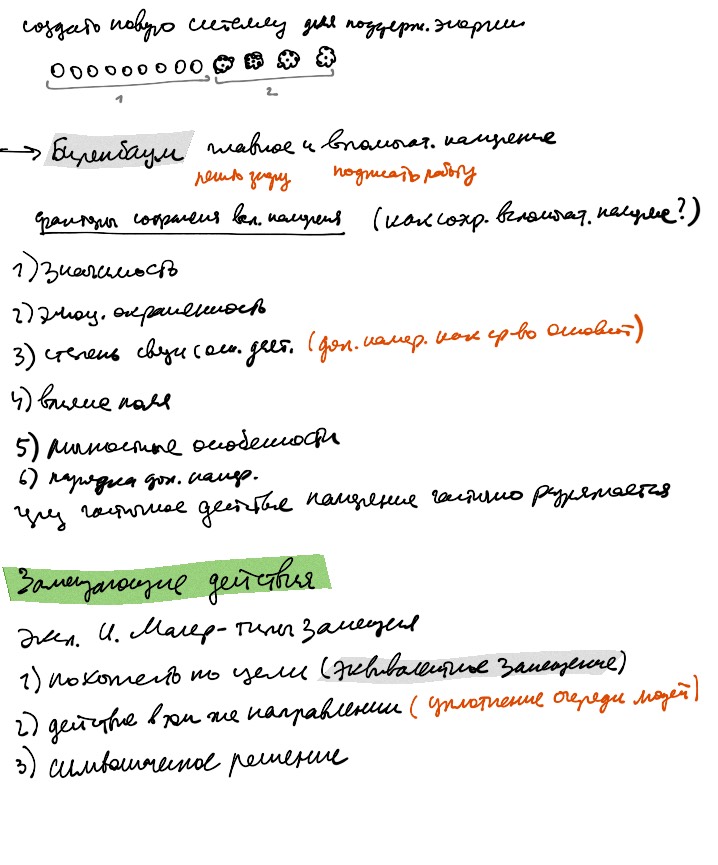 создать новую систему для поддерж. энергии
1 2
→ Биренбаум главное и вспомогат. намерение
решить задачу подписать работу
факторы сохранения вс. намерения (как сохр. вспомогат. намерение?)
1) Значимость
2) эмоц. окрашенность
3) степень связи с осн. дейст. (доп. намер. как ср-во основн)
4) влияние поля
5) личностные особенности
6) разрядка доп. намер.
через частичное действие намерение частично разряжается
Замещающие действия
Эксп. И. Малер - типы замещения
1) похожесть по цели (эквивалентное замещение)
2) действие в том же направлении (уплотнение очереди людей)
3) символическое решение